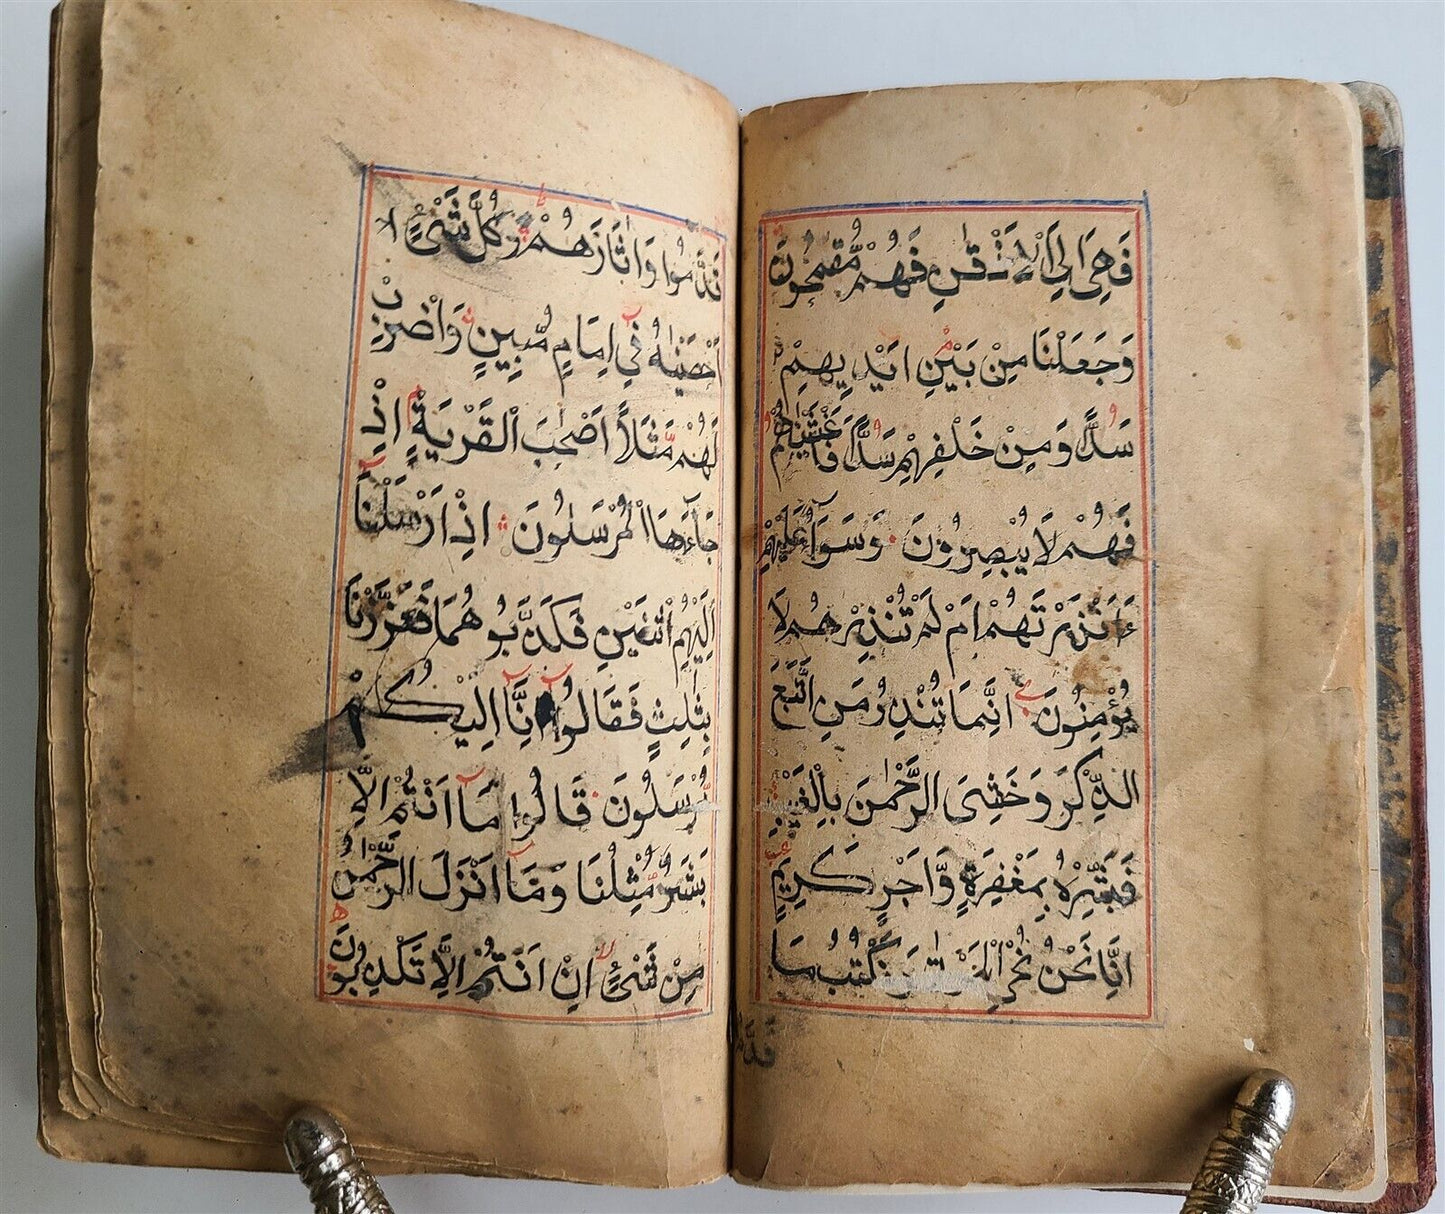 فَهِىَ اِلَى الْاَذْقَانِ فَهُمْ مُّقْمَحُوْنَ
وَجَعَلْنَا مِنْ بَيْنِ اَيْدِيْهِمْ
سَدًّا وَمِنْ خَلْفِهِمْ سَدًّا فَاَغْشَيْنٰهُمْ
فَهُمْ لَا يُبْصِرُوْنَ وَسَوَآءٌ عَلَيْهِمْ
ءَاَنْذَرْتَهُمْ اَمْ لَمْ تُنْذِرْهُمْ لَا
يُؤْمِنُوْنَ اِنَّمَا تُنْذِرُ مَنِ اتَّبَعَ
الذِّكْرَ وَخَشِىَ الرَّحْمٰنَ بِالْغَيْبِ
فَبَشِّرْهُ بِمَغْفِرَةٍ وَّاَجْرٍ كَرِيْمٍ
اِنَّا نَحْنُ نُحْىِ الْمَوْتٰى وَنَكْتُبُ مَا
قدموا
قَدَّمُوْا وَاٰثَارَهُمْ وَكُلَّ شَىْءٍ لا
اَحْصَيْنٰهُ فِىْ اِمَامٍ مُّبِيْنٍ وَاضْرِبْ
لَهُمْ مَّثَلًا اَصْحٰبَ الْقَرْيَةِ اِذْ
جَآءَهَا الْمُرْسَلُوْنَ اِذْ اَرْسَلْنَا
اِلَيْهِمُ اثْنَيْنِ فَكَذَّبُوْهُمَا فَعَزَّزْنَا
بِثَالِثٍ فَقَالُوْا اِنَّآ اِلَيْكُمْ
مُّرْسَلُوْنَ قَالُوْا مَآ اَنْتُمْ اِلَّا
بَشَرٌ مِّثْلُنَا وَمَآ اَنْزَلَ الرَّحْمٰنُ
مِنْ شَىْءٍ اِنْ اَنْتُمْ اِلَّا تَكْذِبُوْنَ